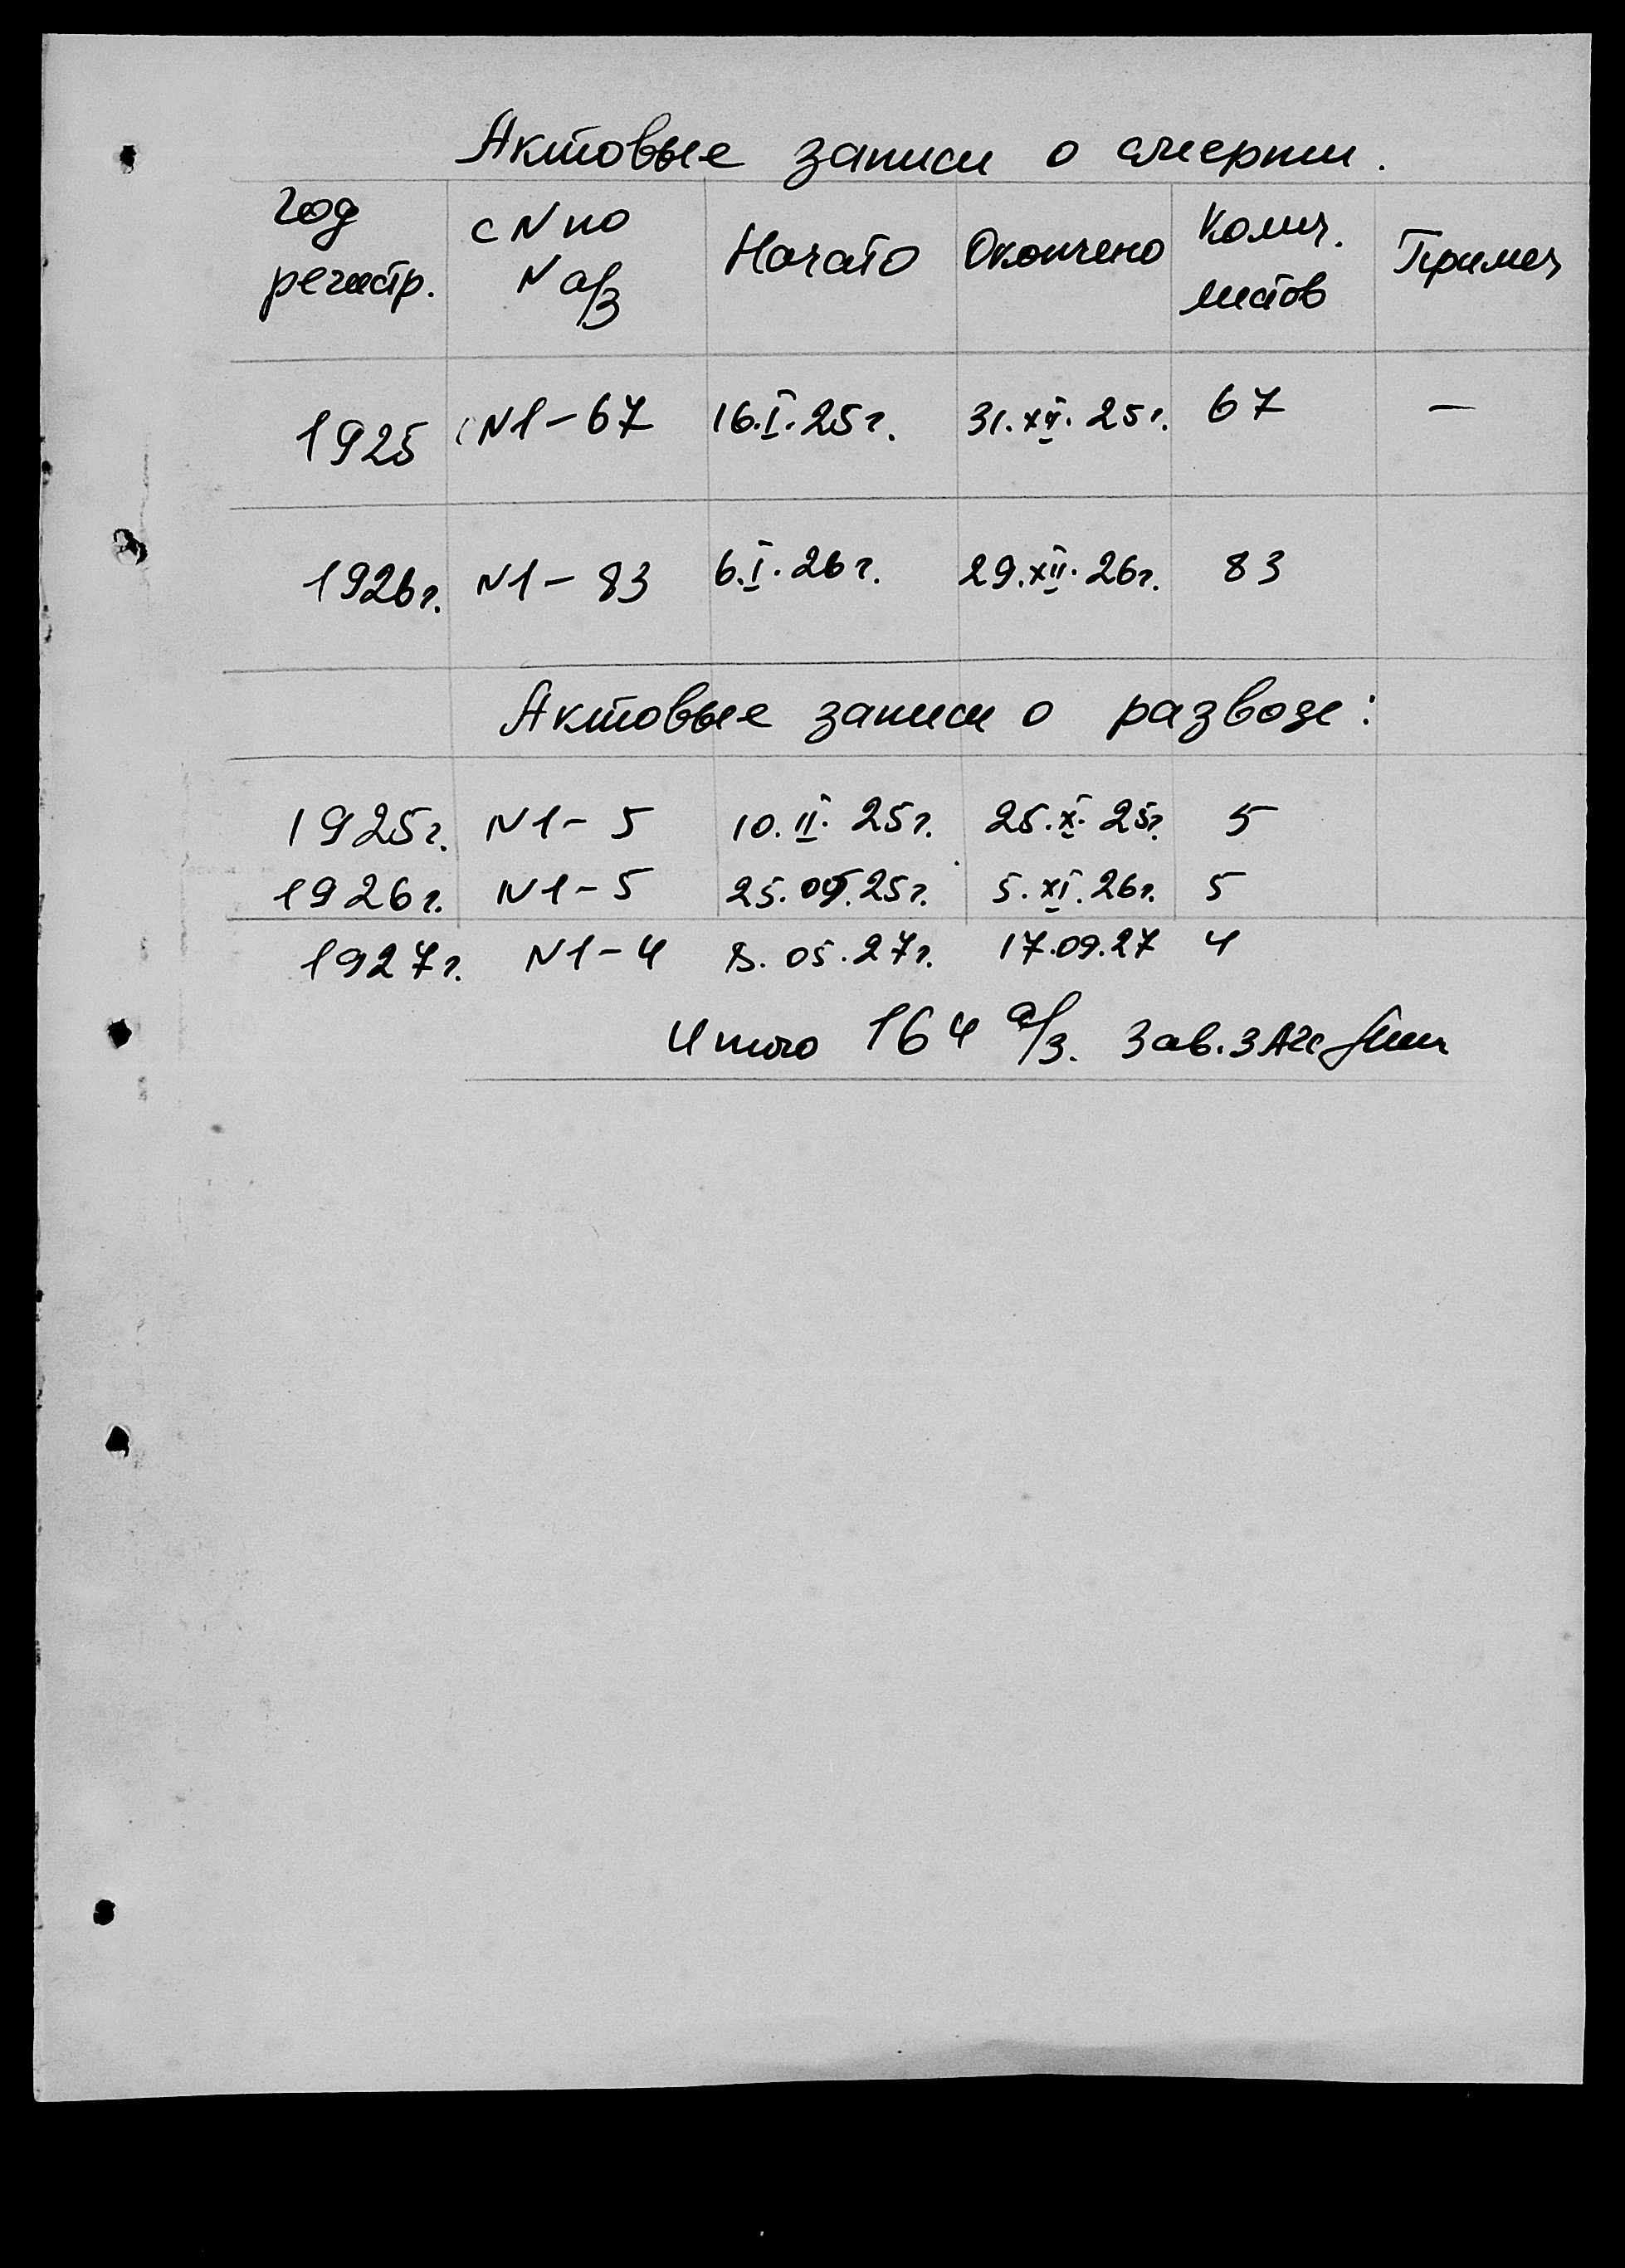 Актовые записи о смерти.
Год регистр. с N по N а/з Начато Окончено Колич. листов Примеч
1925 N1-67 16.I.25г. 31.XII.25г. 67 —
1926г. N1-83 6.I.26г. 29.XII.26г. 83
Актовые записи о разводе:
1925г. N1-5 10.II.25г. 25.X.25г. 5
1926г. N1-5 5.XI.26г. 5
1927г. N1-4 8.05.27г. 17.09.27 4
Итого 164 а/з. Зав. ЗАГС